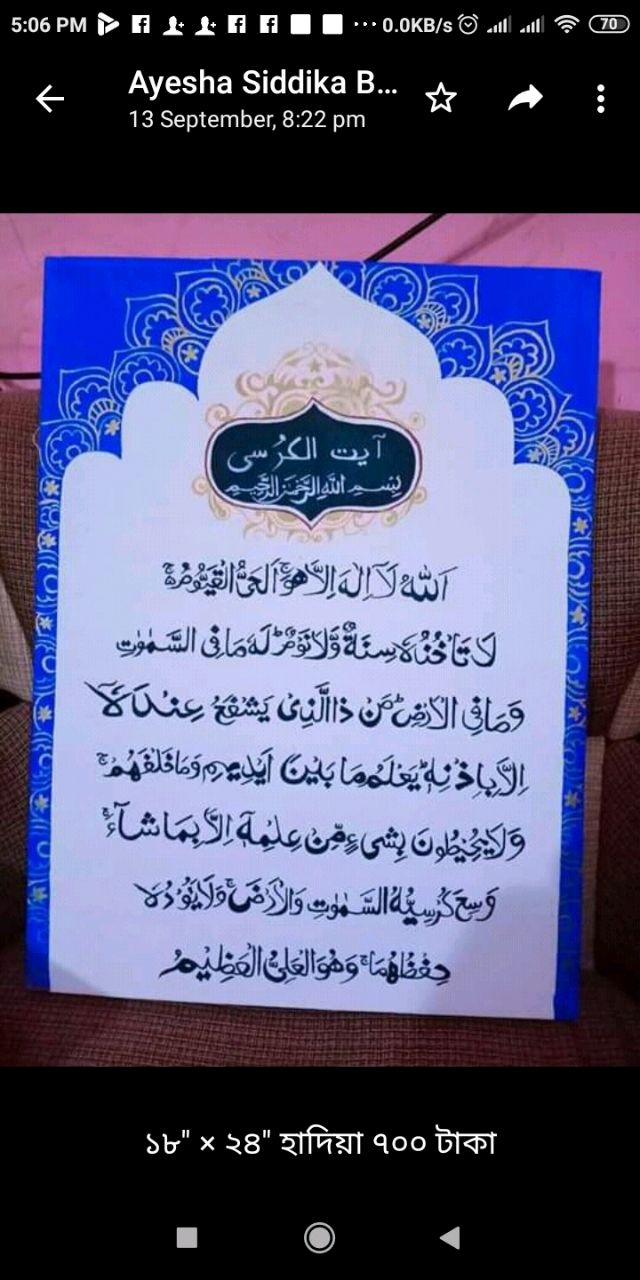 5:06 PM ... 0.0KB/s 70
Ayesha Siddika B...
13 September, 8:22 pm
آيت الكرسى
بِسْمِ اللهِ الرَّحْمٰنِ الرَّحِيْمِ
اَللهُ لَآ اِلٰهَ اِلَّا هُوَ ۚ اَلْحَىُّ الْقَيُّوْمُ ەۚ
لَا تَاْخُذُهٗ سِنَةٌ وَّلَا نَوْمٌ ؕ لَهٗ مَا فِى السَّمٰوٰتِ
وَمَا فِى الْاَرْضِ ؕ مَنْ ذَا الَّذِىْ يَشْفَعُ عِنْدَهٗۤ
اِلَّا بِاِذْنِهٖ ؕ يَعْلَمُ مَا بَيْنَ اَيْدِيْهِمْ وَمَا خَلْفَهُمْ ۚ
وَلَا يُحِيْطُوْنَ بِشَىْءٍ مِّنْ عِلْمِهٖۤ اِلَّا بِمَا شَآءَ ۚ
وَسِعَ كُرْسِيُّهُ السَّمٰوٰتِ وَالْاَرْضَ ۚ وَلَا يَئُوْدُهٗ
حِفْظُهُمَا ۚ وَهُوَ الْعَلِىُّ الْعَظِيْمُ
১৮" × ২৪" হাদিয়া ৭০০ টাকা